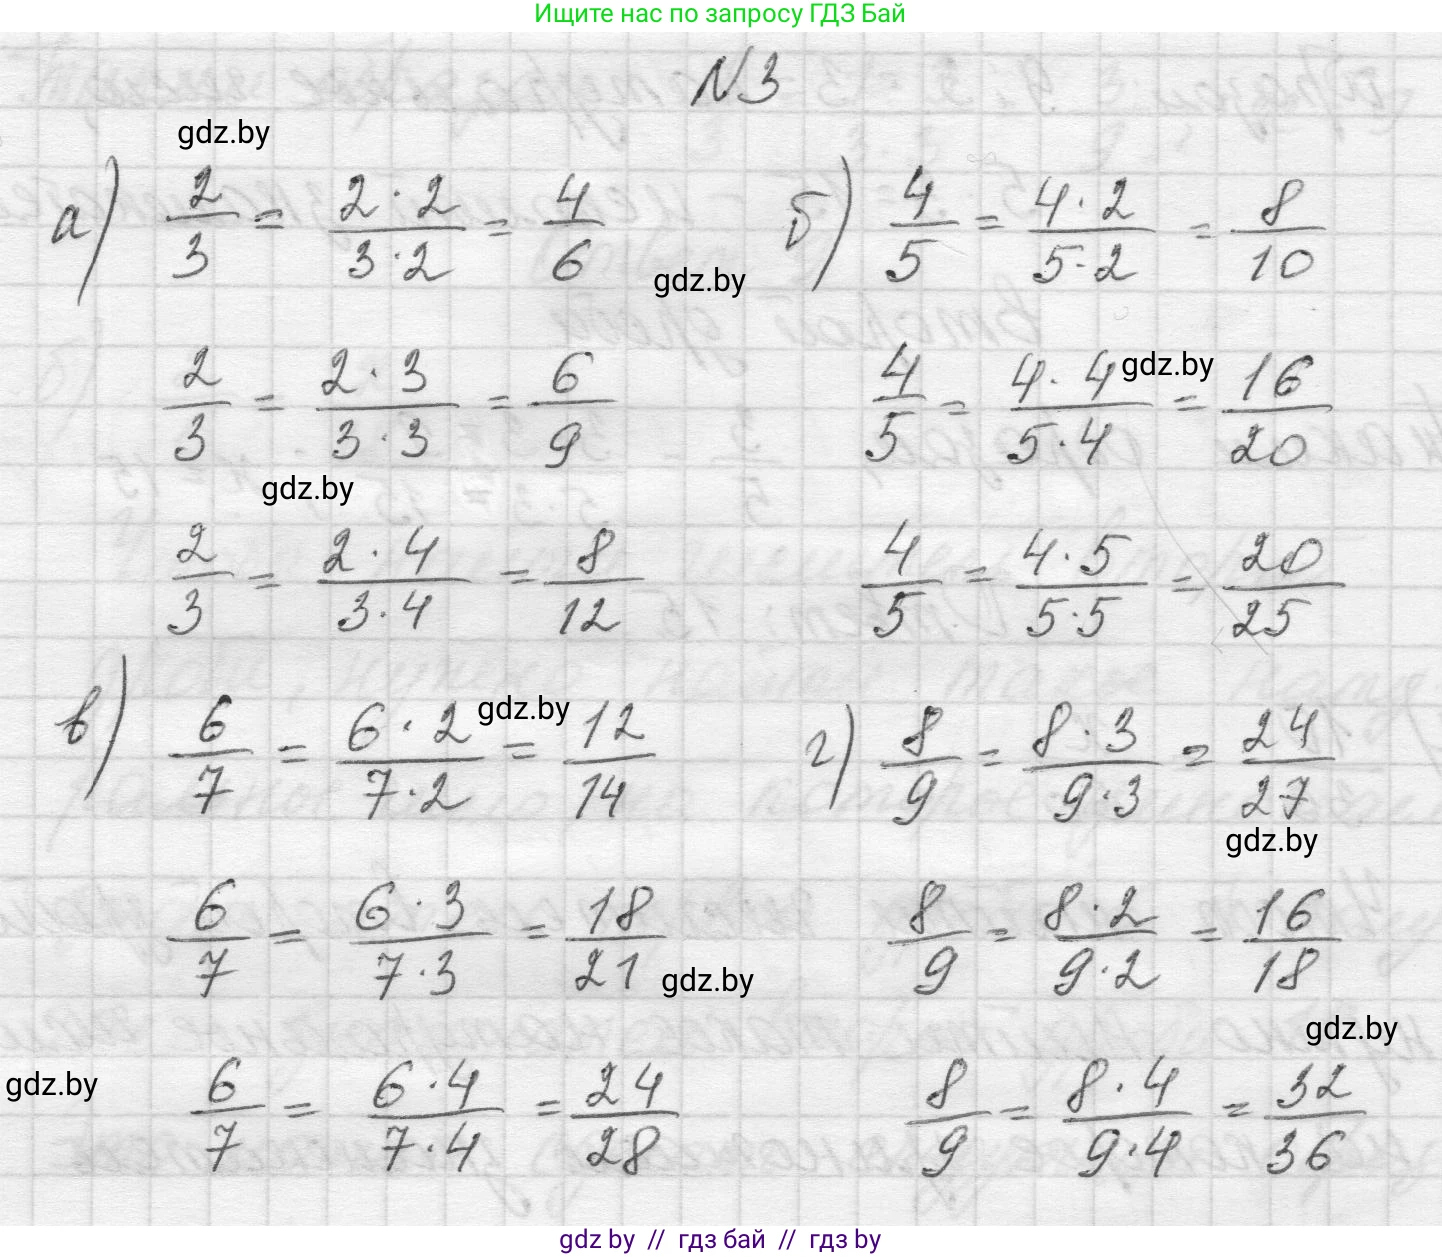 Ищите нас по запросу ГДЗ Бай
N3
gdz.by
а) 2/3 = 2·2/3·2 = 4/6
gdz.by
б) 4/5 = 4·2/5·2 = 8/10
2/3 = 2·3/3·3 = 6/9
4/5 = 4·4/5·4 = 16/20
gdz.by
gdz.by
2/3 = 2·4/3·4 = 8/12
4/5 = 4·5/5·5 = 20/25
в) 6/7 = 6·2/7·2 = 12/14
gdz.by
г) 8/9 = 8·3/9·3 = 24/27
gdz.by
6/7 = 6·3/7·3 = 18/21
gdz.by
8/9 = 8·2/9·2 = 16/18
gdz.by
gdz.by
6/7 = 6·4/7·4 = 24/28
8/9 = 8·4/9·4 = 32/36
gdz by // гдз бай // гдз by